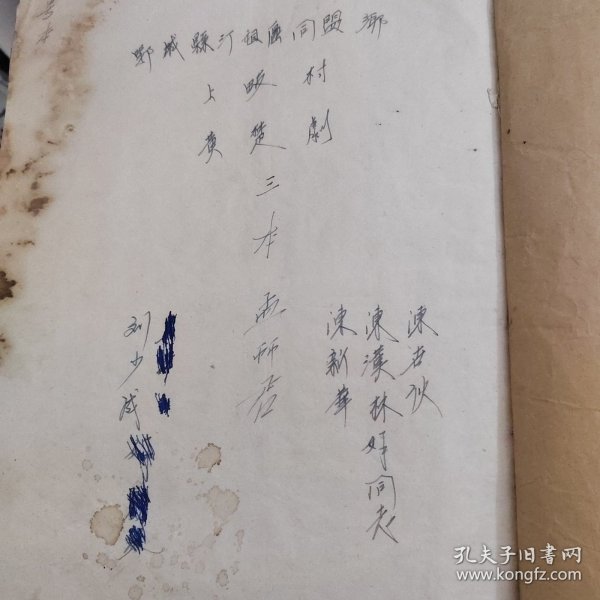 鄂城縣汀祖區同盟鄉
上畈村
黄楚劇
三本
陳漢林好同志
陳新華
刘少成
孔夫子旧书网
www.kongfz.com